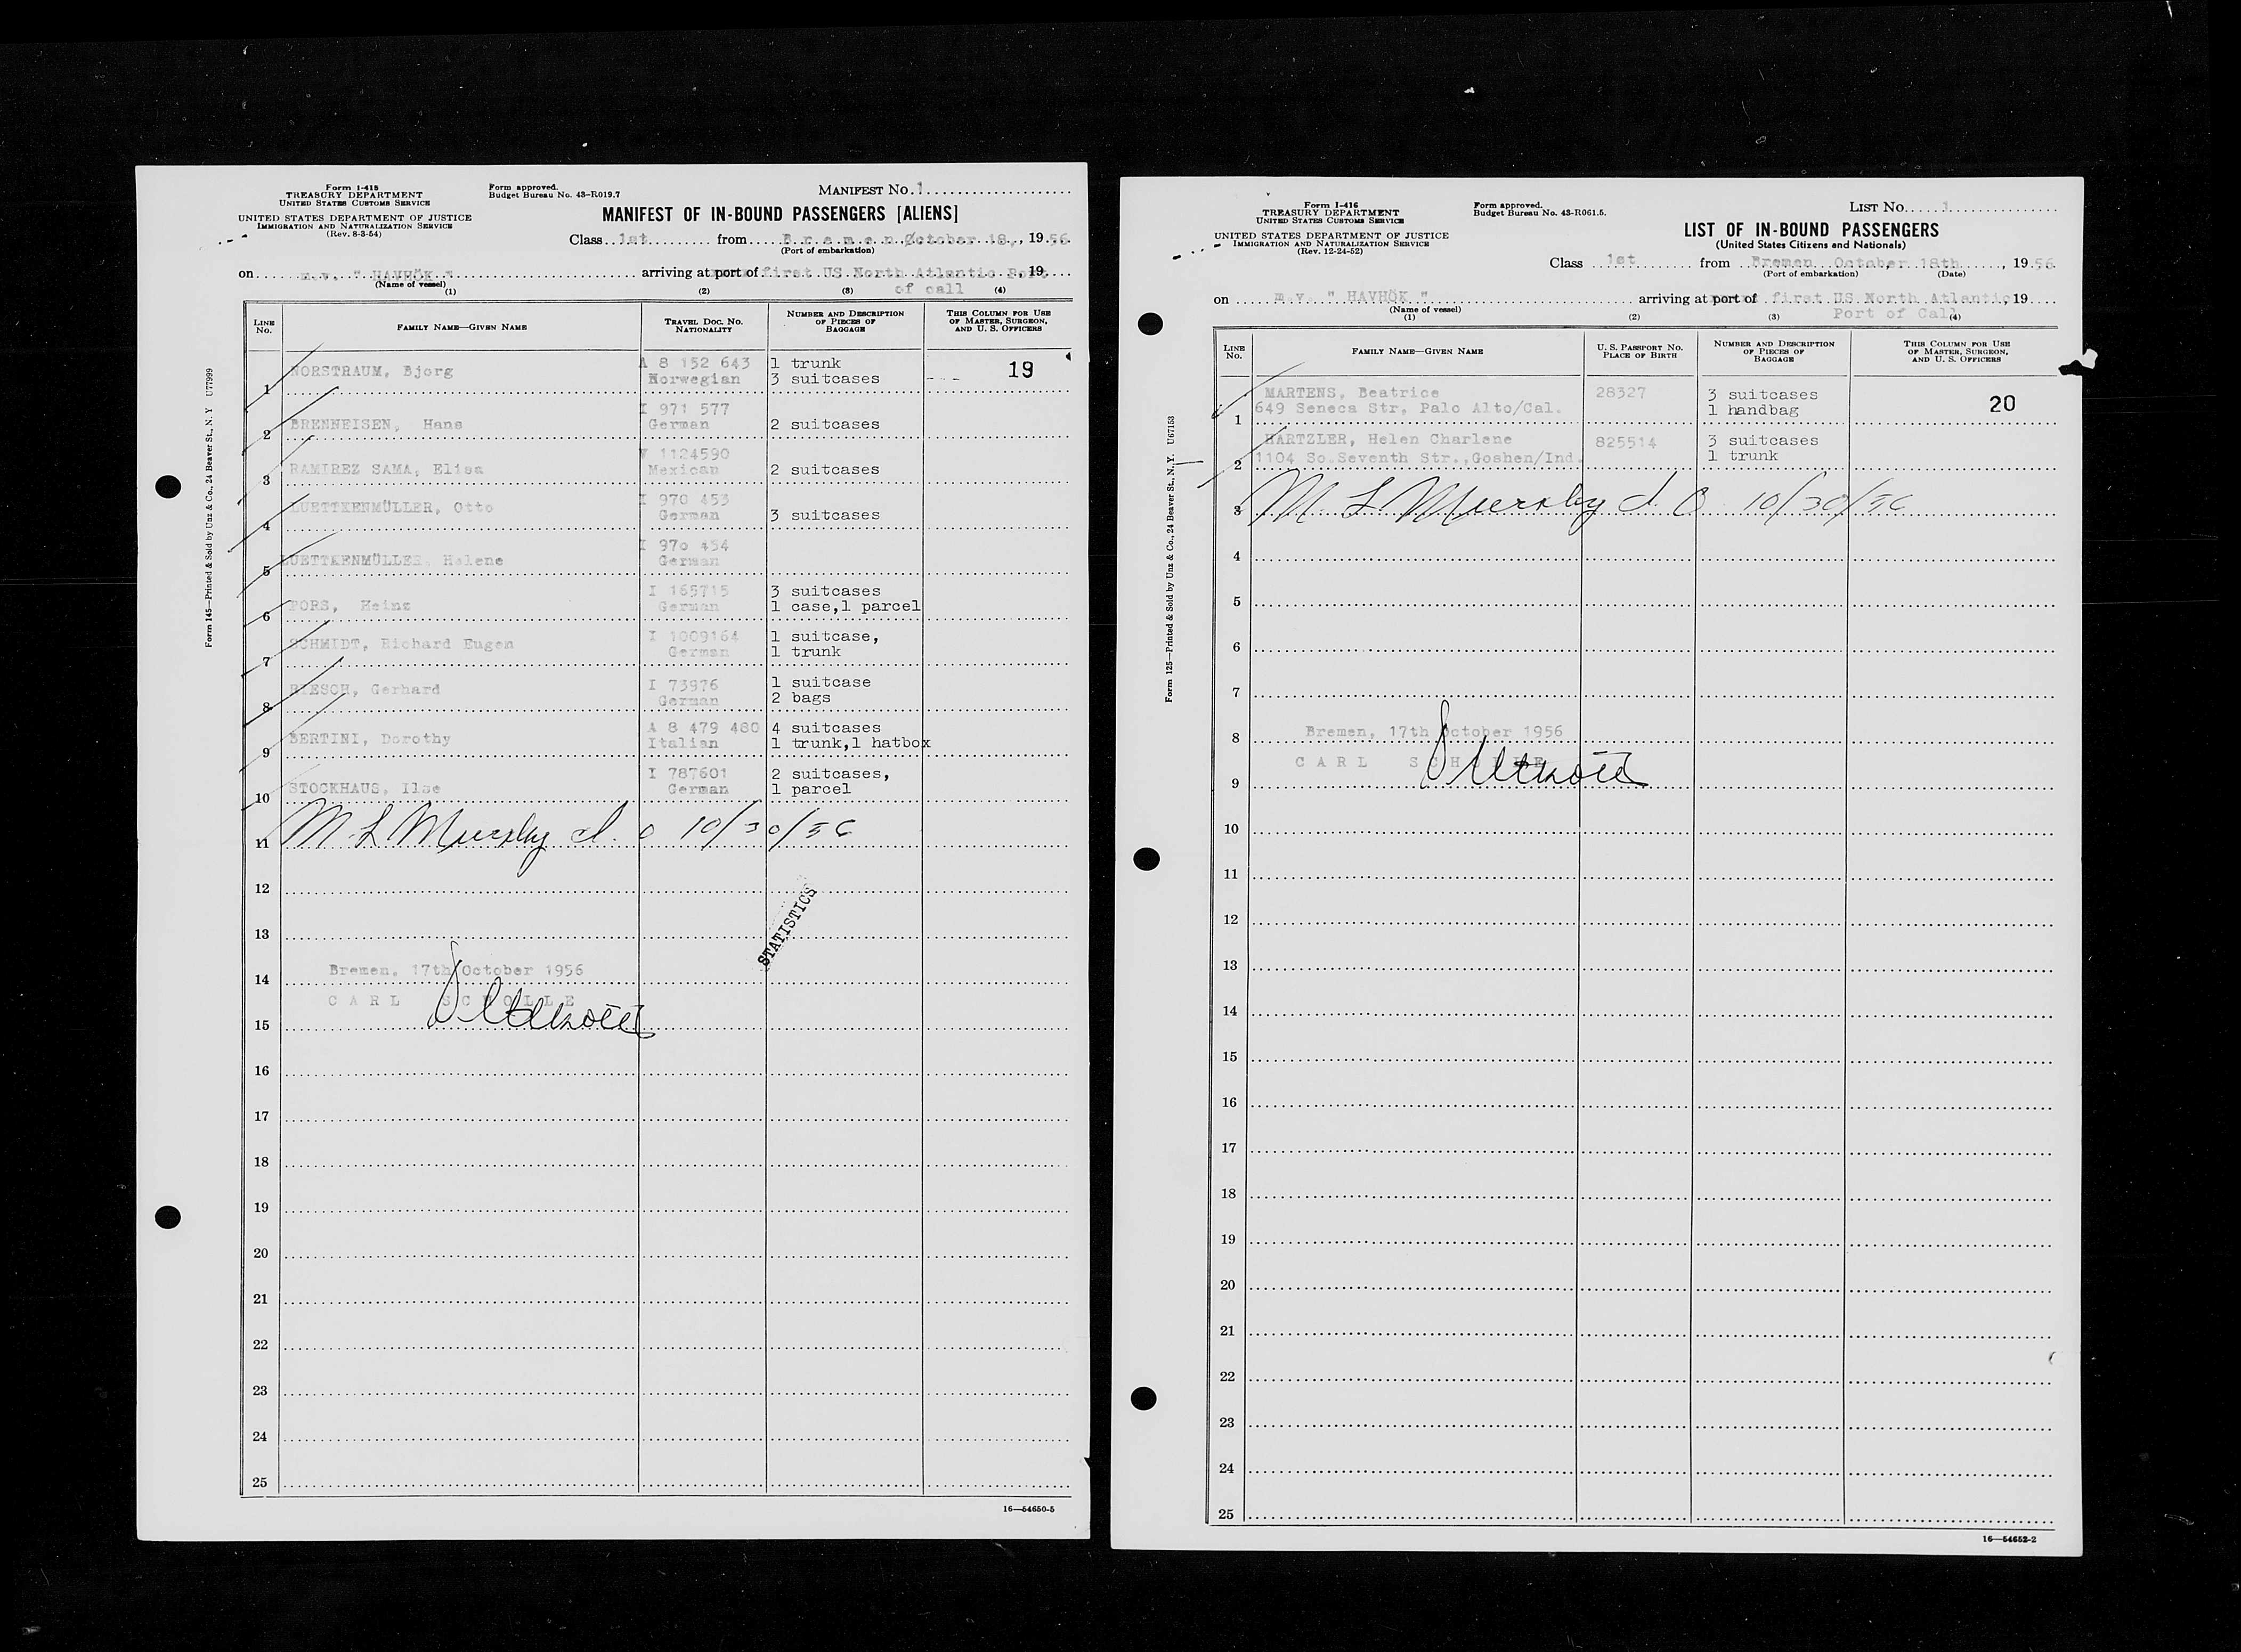 Form I-415
TREASURY DEPARTMENT
UNITED STATES CUSTOMS SERVICE
UNITED STATES DEPARTMENT OF JUSTICE
IMMIGRATION AND NATURALIZATION SERVICE
(Rev. 8-3-54)
Form approved.
Budget Bureau No. 43-R019.7
MANIFEST No. 1
MANIFEST OF IN-BOUND PASSENGERS [ALIENS]
Class 1st from Bremen, October 18, 1956
(Port of embarkation)
on m.v. " HAVHÖK " arriving at port of first US North Atlantic Port, 19
of call
(Name of vessel)
(1) (2) (3) (4)
LINE No. FAMILY NAME—GIVEN NAME TRAVEL DOC. No. NATIONALITY NUMBER AND DESCRIPTION OF PIECES OF BAGGAGE THIS COLUMN FOR USE OF MASTER, SURGEON, AND U. S. OFFICERS
A 8 152 643 1 trunk 19
1 NORSTRAUM, Bjorg Norwegian 3 suitcases
I 971 577
2 BRENNEISEN, Hans German 2 suitcases
V 1124590
3 RAMIREZ SAMA, Elisa Mexican 2 suitcases
I 970 453
4 LUETTKENMÜLLER, Otto German 3 suitcases
I 970 454
5 LUETTKENMÜLLER, Helene German
I 165715 3 suitcases
6 PORS, Heinz German 1 case,1 parcel
I 1009164 1 suitcase,
7 SCHMIDT, Richard Eugen German 1 trunk
I 73976 1 suitcase
8 RIESCH, Gerhard German 2 bags
A 8 479 480 4 suitcases
9 BERTINI, Dorothy Italian 1 trunk,1 hatbox
I 787601 2 suitcases,
10 STOCKHAUS, Ilse German 1 parcel
11 M. L. 10/30/56
12
STATISTICS
13
Bremen, 17th October 1956
14
CARL SCHOLLE
15
16
17
18
19
20
21
22
23
24
25
16—54650-5
Form 145—Printed & Sold by Unz & Co., 24 Beaver St., N. Y U77999
Form I-416
TREASURY DEPARTMENT
UNITED STATES CUSTOMS SERVICE
UNITED STATES DEPARTMENT OF JUSTICE
IMMIGRATION AND NATURALIZATION SERVICE
(Rev. 12-24-52)
Form approved.
Budget Bureau No. 43-R061.5.
LIST No. 1
LIST OF IN-BOUND PASSENGERS
(United States Citizens and Nationals)
Class 1st from Bremen October 18th, 1956
(Port of embarkation) (Date)
on m.v. " HAVHÖK " arriving at port of first US North Atlantic 19
Port of Call
(Name of vessel)
(1) (2) (3) (4)
LINE No. FAMILY NAME—GIVEN NAME U. S. PASSPORT No. PLACE OF BIRTH NUMBER AND DESCRIPTION OF PIECES OF BAGGAGE THIS COLUMN FOR USE OF MASTER, SURGEON, AND U. S. OFFICERS
MARTENS, Beatrice 28327 3 suitcases 20
1 649 Seneca Str, Palo Alto/Cal. 1 handbag
HARTZLER, Helen Charlene 825514 3 suitcases
2 1104 So.Seventh Str.,Goshen/Ind. 1 trunk
3 M. L. 10/30/56
4
5
6
7
8 Bremen, 17th October 1956
CARL SCHOLLE
9
10
11
12
13
14
15
16
17
18
19
20
21
22
23
24
25
16—54652-2
Form 125—Printed & Sold by Unz & Co., 24 Beaver St., N. Y. U67153